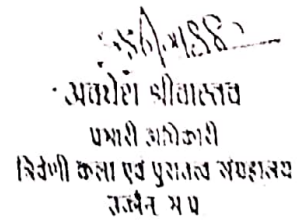 अवधेश श्रीवास्तव
प्रभारी अधिकारी
त्रिवेणी कला एवं पुरातत्व संग्रहालय
उज्जैन म प्र